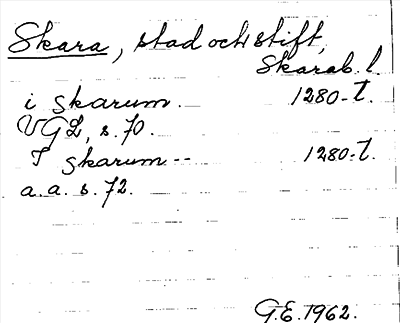 Skara, stad och stift,
Skarab. l.
i skarum. 1280-t.
VGL, s. 70.
I skarum -- 1280-t.
a.a. s. 72.
G.E. 1962.